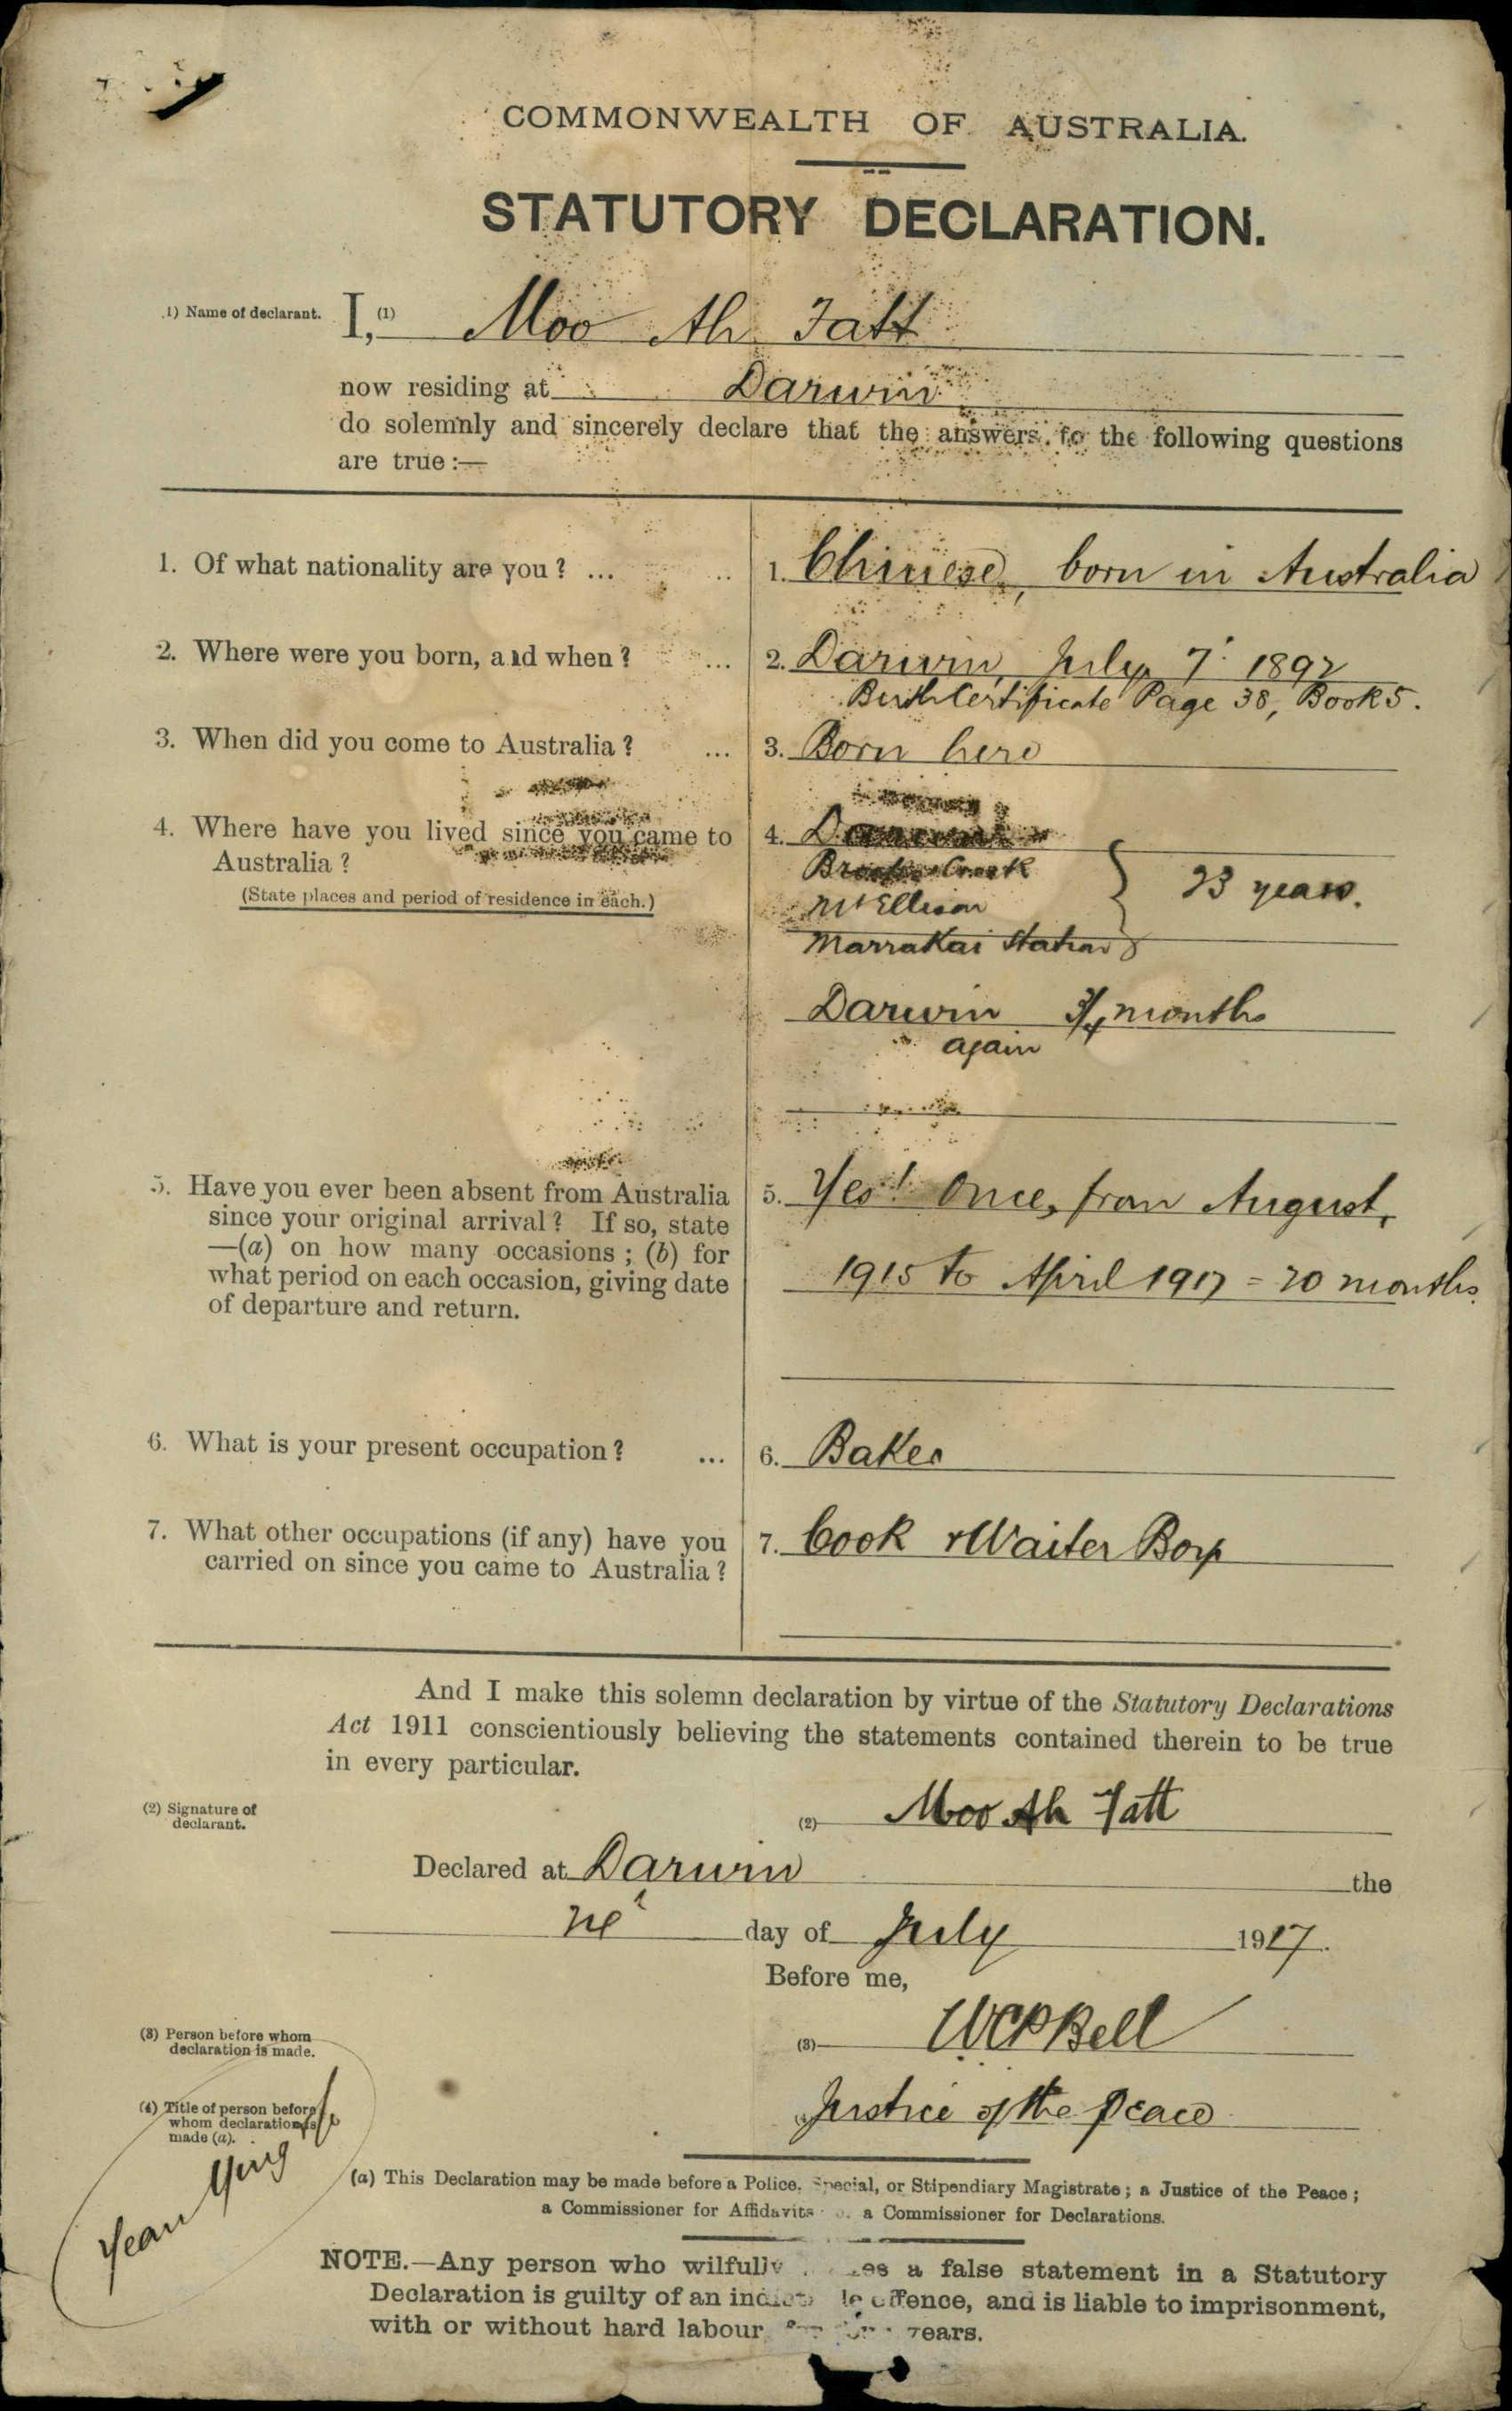 COMMONWEALTH OF AUSTRALIA.
STATUTORY DECLARATION.
(1) Name of declarant. I, (1) Moo Ah Fatt
now residing at Darwin
do solemnly and sincerely declare that the answers to the following questions
are true :—
1. Of what nationality are you ? ... 1. Chinese, born in Australia
2. Where were you born, and when ? ... 2. Darwin, July, 7 1892
Birth Certificate Page 38, Book 5.
3. When did you come to Australia ? ... 3. Born here
4. Where have you lived since you came to 4.
Australia ? Creek
(State places and period of residence in each.) Mt Ellison } 23 years.
Marrakai Station
Darwin 3/4 months
again
5. Have you ever been absent from Australia 5. Yes! Once, from August,
since your original arrival ? If so, state
—(a) on how many occasions ; (b) for
what period on each occasion, giving date 1915 to April 1917 = 20 months.
of departure and return.
6. What is your present occupation ? ... 6. Baker
7. What other occupations (if any) have you 7. Cook + Waiter Boy
carried on since you came to Australia ?
And I make this solemn declaration by virtue of the Statutory Declarations
Act 1911 conscientiously believing the statements contained therein to be true
in every particular.
(2) Signature of (2) Moo Ah Fatt
declarant.
Declared at Darwin the
day of July 1917.
Before me,
(3) Person before whom (3) WCPBell
declaration is made.
(4) Title of person before Justice of the Peace
whom declaration is
made (a).
(a) This Declaration may be made before a Police, Special, or Stipendiary Magistrate ; a Justice of the Peace ;
a Commissioner for Affidavits a Commissioner for Declarations.
NOTE.—Any person who wilfully a false statement in a Statutory
Declaration is guilty of an offence, and is liable to imprisonment,
with or without hard labour years.